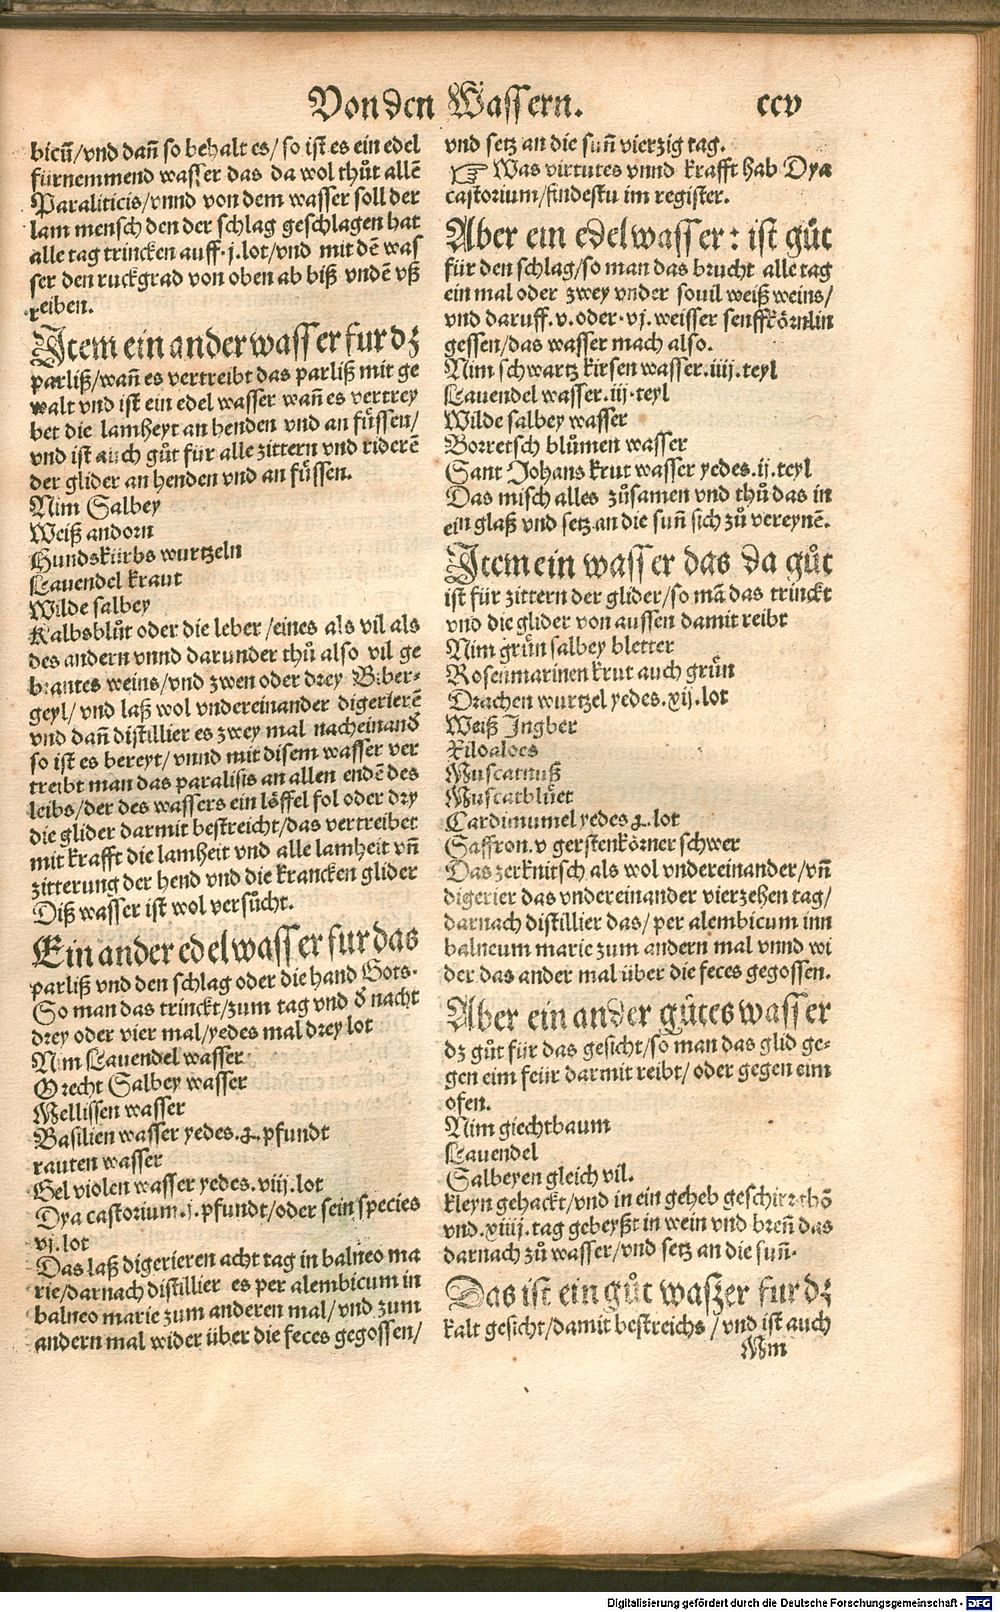 Von den Wassern.
ccv
bicū/vnd dañ so behalt es/so ist es ein edel
fürnemmend wasser das da wol thůt allē
Paraliticis/vnnd von dem wasser soll der
lam mensch den der schlag geschlagen hat
alle tag trincken auff.j.lot/vnd mit dē was
ser den ruckgrad von oben ab biß vndē vß
reiben.
Item ein ander wasser fur dz
parliß/wañ es vertreibt das parliß mit ge
walt vnd ist ein edel wasser wañ es vertrey
bet die lamheyt an henden vnd an füssen/
vnd ist auch gůt für alle zittern vnd riderē
der glider an henden vnd an füssen.
Nim Salbey
Weiß andorn
Hundskürbs wurtzeln
Lauendel kraut
Wilde salbey
Kalbsblůt oder die leber/eines als vil als
des andern vnnd darunder thů also vil ge
brantes weins/vnd zwen oder drey Biber-
geyl/vnd laß wol vndereinander digerierē
vnd dañ distillier es zwey mal nacheinand
so ist es bereyt/vnnd mit disem wasser ver
treibt man das paralisis an allen endē des
leibs/der des wassers ein löffel fol oder dry
die glider darmit bestreicht/das vertreibet
mit krafft die lamheit vnd alle lamheit vñ
zitterung der hend vnd die krancken glider
Diß wasser ist wol versůcht.
Ein ander edel wasser fur das
parliß vnd den schlag oder die hand Gots.
So man das trinckt/zum tag vnd d nacht
drey oder vier mal/yedes mal drey lot
Nim Lauendel wasser
Grecht Salbey wasser
Mellissen wasser
Basilien wasser yedes.ʒ.pfundt
rauten wasser
Gel violen wasser yedes.viij.lot
Dya castorium.j.pfundt/oder sein species
vj.lot
Das laß digerieren acht tag in balneo ma
rie/darnach distillier es per alembicum in
balneo marie zum anderen mal/vnd zum
andern mal wider über die feces gegossen/
vnd setz an die suñ vierzig tag.
☞ Was virtutes vnnd krafft hab Dya
castorium/findestu im register.
Aber ein edel wasser: ist gůt
für den schlag/so man das brucht alle tag
ein mal oder zwey vnder souil weiß weins/
vnd daruff.v.oder.vj.weisser senffkörnlin
gessen/das wasser mach also.
Nim schwartz kirsen wasser.iiij.teyl
Lauendel wasser.iij.teyl
Wilde salbey wasser
Borretsch blůmen wasser
Sant Johans krut wasser yedes.ij.teyl
Das misch alles zůsamen vnd thů das in
ein glaß vnd setz an die suñ sich zů vereynē.
Item ein wasser das da gůt
ist für zittern der glider/so mā das trinckt
vnd die glider von aussen damit reibt
Nim grün salbey bletter
Rosenmarinen krut auch grün
Drachen wurtzel yedes.xij.lot
Weiß Ingber
Xiloaloes
Muscatnuß
Muscatblüet
Cardimumel yedes ʒ.lot
Saffron.v gerstenkörner schwer
Das zerknitsch als wol vndereinander/vñ
digerier das vndereinander vierzehen tag/
darnach distillier das/per alembicum inn
balneum marie zum andern mal vnnd wi
der das ander mal über die feces gegossen.
Aber ein ander gůtes wasser
dz gůt für das gesicht/so man das glid ge-
gen eim feür darmit reibt/oder gegen eim
ofen.
Nim giechtbaum
Lauendel
Salbeyen gleich vil.
kleyn gehackt/vnd in ein geheb geschirr
vnd.xiiij.tag gebeyßt in wein vnd breñ das
darnach zů wasser/vnd setz an die suñ.
Das ist ein gůt waszer fur dz
kalt gesicht/damit bestreichs/vnd ist auch
Mm
Digitalisierung gefördert durch die Deutsche Forschungsgemeinschaft - DFG